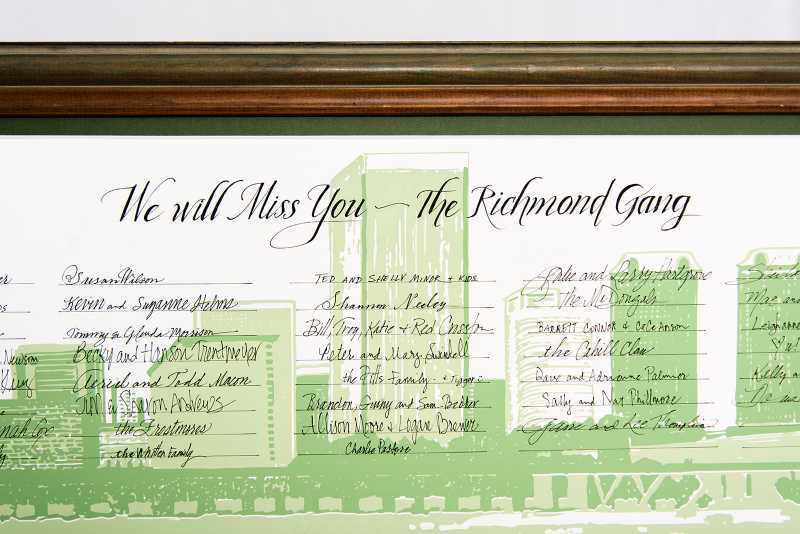 We will Miss You — The Richmond Gang
Susan Wilson
Kevin and Suzanne
Tommy & Glenda Morrison
Becky and Hanson Trentmeyer
Aeriel and Todd Macon
Sharon Andrews
the Firstmires
the Whitten Family
Newsom
TED AND SHELLY MINOR + KIDS
Shannon Neeley
Bill, Troy, Katie & Red
Peter and Mary
the Pitts Family & Tigger
Brandon, Ginny and Sam Bebber
Allison Moore & Logan Brewer
Charlie Pastore
Katie and Larry Hargrove
The McDonyals
BARNETT CONNOR & COCE ANSON
the Cahill Clan
Dave and Adrienne Palmer
Sally and Nat Phillmore
and Lee Thompkins
Mae and
Leighanne
Kelly a